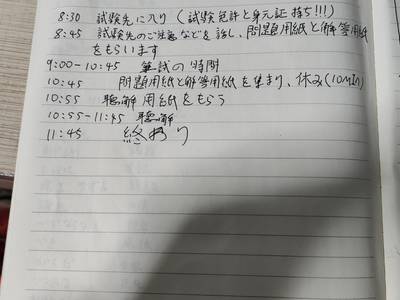 8:30 試験先に入り（試験免許と身元証持ち!!!）
8:45 試験先のご注意などを話し、問題用紙と解答用紙
をもらいます
9:00-10:45 筆試の時間
10:45 問題用紙と解答用紙を集まり、休み(10MIN)
10:55 聴解用紙をもらう
10:55-11:45 聴解
11:45 終わり